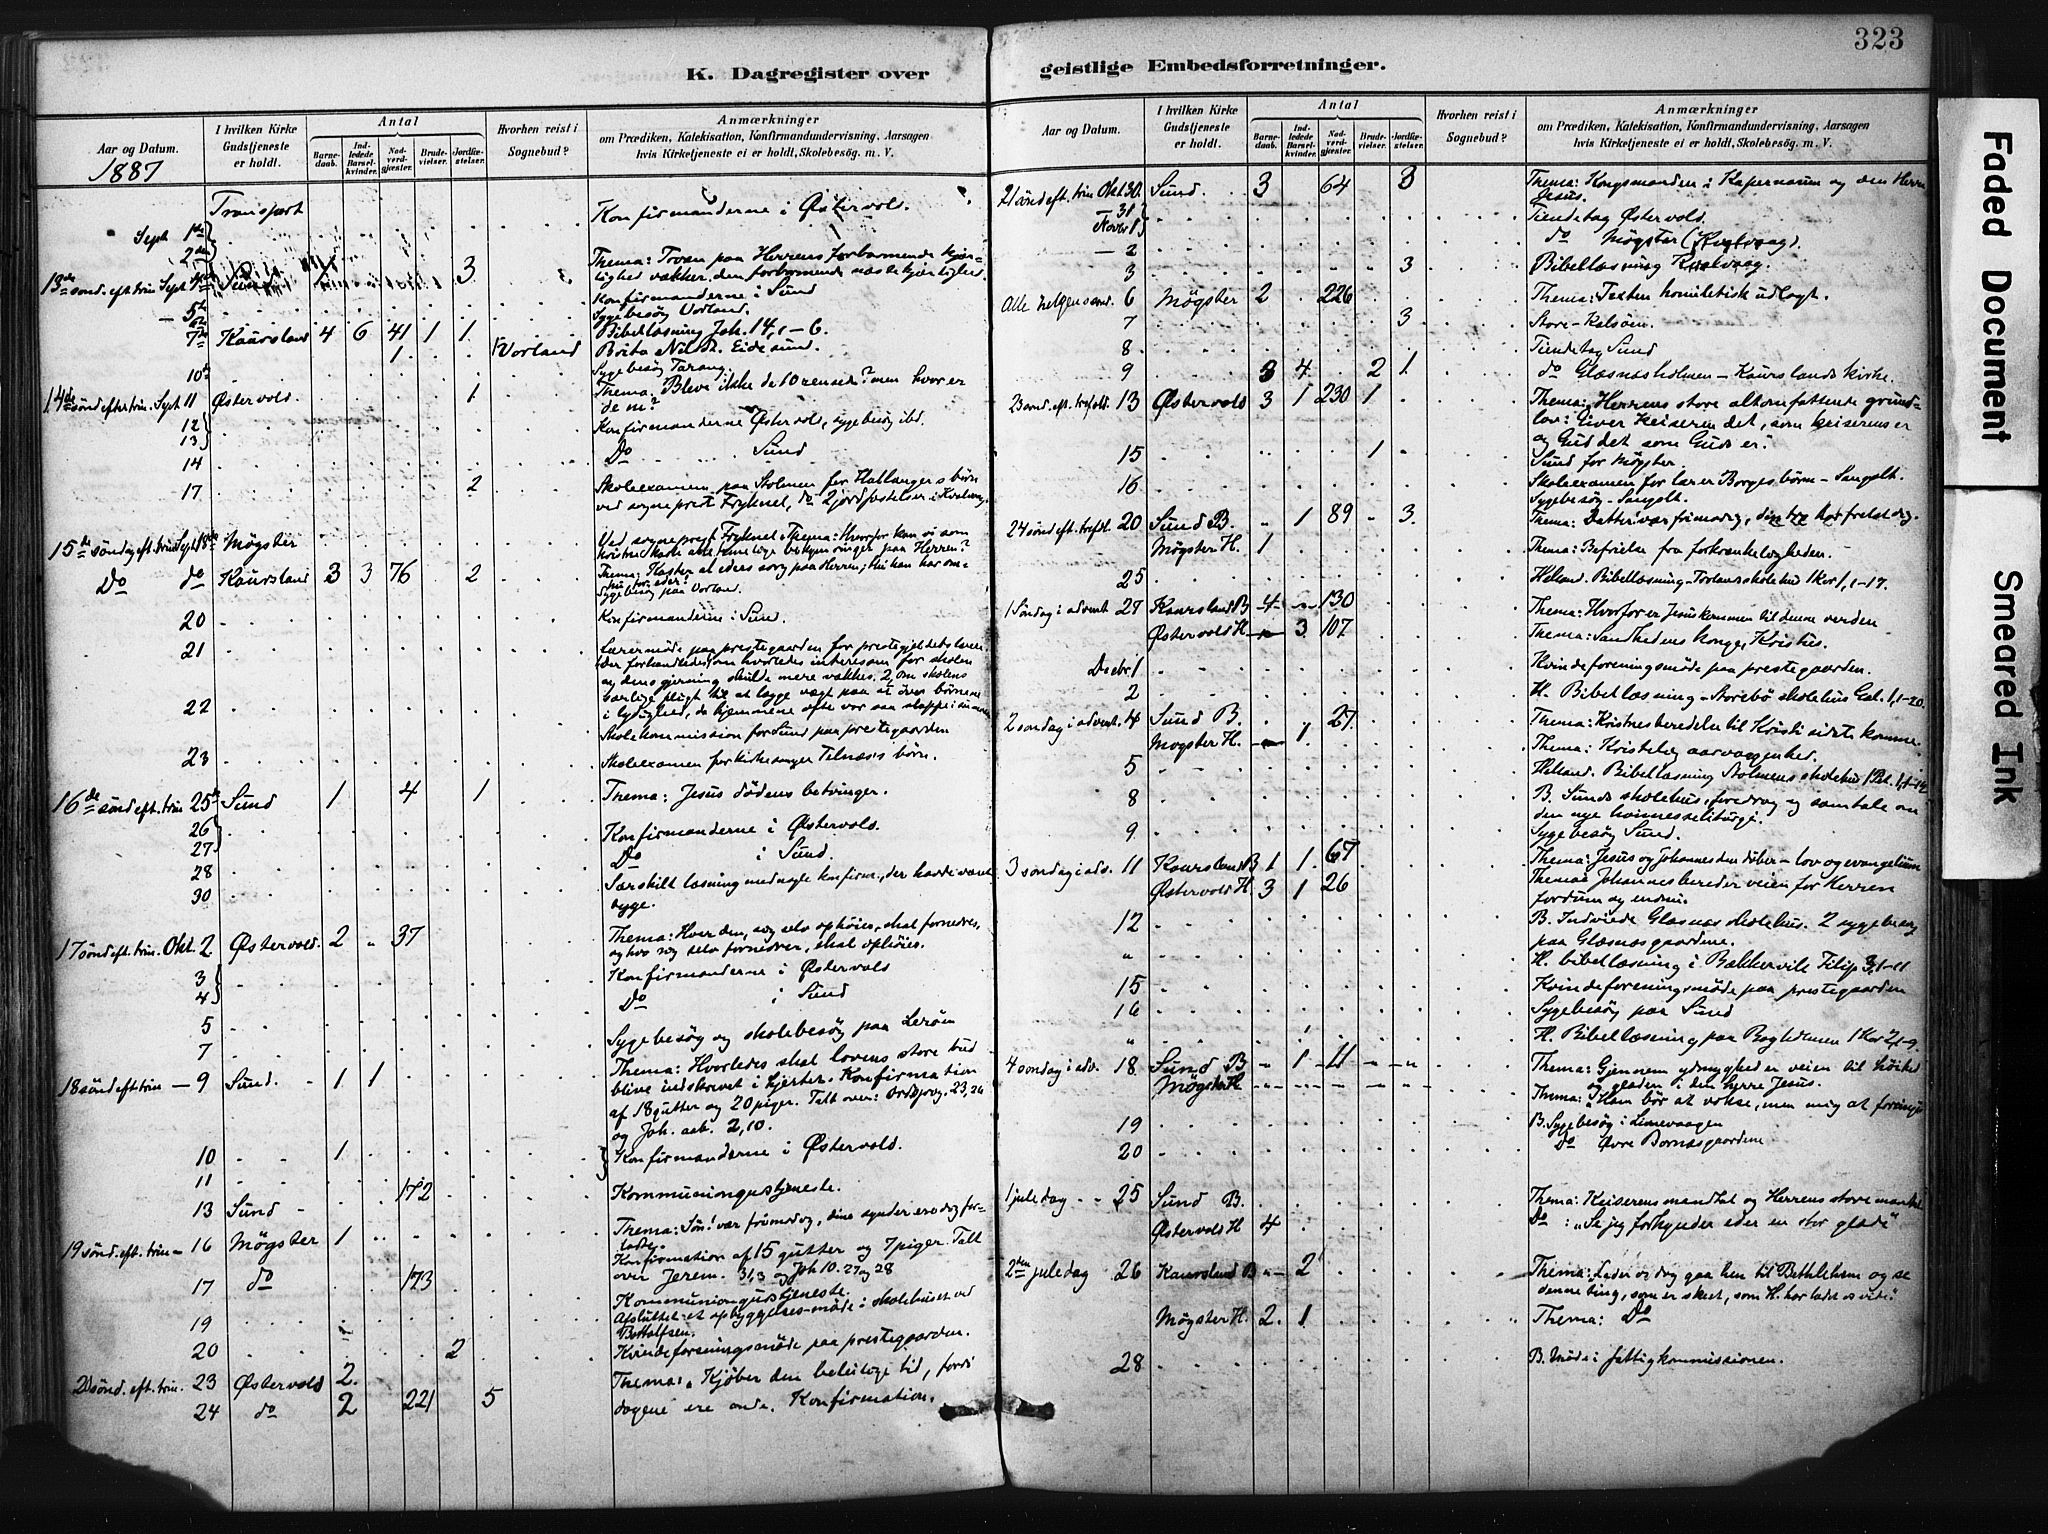 323
K. Dagregister over
geistlige Embedsforretninger.
Aar og Datum.
1887
I hvilken Kirke Gudstjeneste er holdt.
Antal
Barne-daab.
Ind-ledede Barsel-kvinder.
Nad-verd-gjæster.
Brude-vielser.
Jordfæ-stelser.
Hvorhen reist i Sognebud?
Anmærkninger
om Prædiken, Katekisation, Konfirmandundervisning, Aarsagen
hvis Kirketjeneste ei er holdt, Skolebesøg. m. V.
Transport
Sept 1ste Konfirmanderne i Østervold.
2den
13de sønd. eft. trin Sept 4de Sund 3 Thema: Troen paa Herrens forbarmende kjær-
lighed vækker den forbarmende næstekjærlighed.
5te Konfirmanderne i Sund
6te Sygebesøg Vorland.
7de Kaursland 4 6 41 1 1 Bibellæsning Joh. 14,1-6.
1 Vorland Brita Nilsd. Eidesund.
10de Sygebesøg Tarang
14de sønd efter trin. Sept 11 Østervold. 1 Thema: Bleve ikke de 10 rensede? men hvor er
de m?
12 Konfirmanderne Østervold, sygebesøg ibd.
13
14 Do Sund
17 2 Skoleexamen paa Stolmen for Hallangers børn
ved sogneprest Fryknel, do 2 jordfæstelser i Kvalvaag.
15de søndag eft. trin Sept 18de Møgster Ved sogneprest Fryknel. Thema: Hvorfor kan vi som
kristne kaste alle timelige bekymringer paa Herren?
Do do Kaursland 3 3 76 2 Thema: Kaster al eders sorg paa Herren; thi han har om-
hu for eder!
Sygebesøg paa Vorland.
20 Konfirmanderne i Sund.
21 Lærermøde paa prestegaarden for prestegjeldets lærere
Der forhandledes om hvorledes interessen for skolen
og dens gjerning skulde mere vækkes. 2, Om skolens
særlige pligt til at lægge vægt paa at øve børnene
22 i lydighed, da hjemmene ofte var saa slappe i
Skolekommission for Sund paa prestegaarden
23 Skoleexamen for kirkesanger Telnæs's børn.
16de sønd eft. trin 25de Sund 1 4 1 Thema: Jesus dødens betvinger.
26 Konfirmanderne i Østervold.
27
28 Do i Sund.
30 Særskilt læsning med nogle konfirm., der havde været
syge.
17 sønd eft. trin. Okt. 2 Østervold. 2 " 37 Thema: Hver den, sig selv ophøier, skal fornedres,
og hvo sig selv fornedrer, skal ophøies.
3 Konfirmanderne i Østervold
4
5 Do i Sund
7 Sygebesøg og skolebesøg paa Lerøen
18 sønd eft. trin - 9 Sund. 1 1 Thema: Hvorledes skal lovens store bud
blive indskrevet i hjerter. Konfirmation
af 18 gutter og 20 piger. Talt over: Ordsprog. 23,26
og Joh. aab. 2,10.
10 1 Konfirmanderne i Østervold.
11
13 Sund 172 Kommuniongustjeneste.
19 sønd. eft. trin - 16 Møgster 1 Thema: Søn! vær frimodig, dine synder ere dig for-
ladte.
Konfirmation af 15 gutter og 7 piger. Talt
over Jerem. 31,3 og Joh 10. 27 og 28
17 do 173 Kommuniongudstjeneste.
19 Afsluttet et opbyggelses-møde i skolehuset ved
Bottolfsen.
20 2 Kvindeforeningsmøde paa prestegaarden.
20 sønd. eft. trin. 23 Østervold 2. Thema: "Kjøber den beleilige tid, fordi
24 do 2 221 5 dagene ere onde. Konfirmation.
Aar og Datum.
I hvilken Kirke Gudstjeneste er holdt.
Antal
Barne-daab.
Ind-ledede Barsel-kvinder.
Nad-verd-gjæster.
Brude-vielser.
Jordfæ-stelser.
Hvorhen reist i Sognebud?
Anmærkninger
om Prædiken, Katekisation, Konfirmandundervisning, Aarsagen
hvis Kirketjeneste ei er holdt, Skolebesøg. m. V.
21 sønd eft. trin Okt 30. Sund. 3 64 3 Thema: Kongsmanden i Kapernaum og den Herre
Jesus.
31 Tiendetag Østervold.
Novbr 1
- 2 do Møgster (Kvalvaag).
3 3 Bibellæsning Kvalvaag.
Alle helgens ønd. 6 Møgster 2 226 Thema: Texten homiletisk udlagt.
7 3 Store-Kalsøen.
8 Tiendetag Sund
9 3 4 2 1 do Glæsnæsholmen - Kaurslands kirke.
23 ønd. eft. trefold. 13 Østervold 3 1 230 1 Thema: Herrens store altomfattende grund-
lov: Giver keiseren det, som keiserens er
og Gud det som Guds er!
15 1 Sund for Møgster
16 Skoleexamen for lærer Borges børn - Sangolt.
Sygebesøg - Sangolt.
24 sønd eft. trefdt. 20 Sund B. 1 89 3. Thema: Datter! vær frimodig, din tro har frelst dig.
Møgster H. 1 Thema: Befrielse fra forkrænkeligheden.
25 Helland. Bibellæsning - skolehus 1 Kor 1,1-17.
1 Søndag i advent 27 Kaursland B 4 130 Thema: Hvorfor er Jesus kommen til denne verden
Østervold H. 3 107 Thema: Sandhedens konge, Kristus.
Decbr 1 Kvindeforeningsmøde paa prestegaarden.
2 H. Bibellæsning - Storebø skolehus Gal. 1,1-20.
2 søndag i advent. 4 Sund B. 27 Thema: Kristnes beredelse til Kristi sidste komme.
Møgster H. 1 Thema: Kristelig aarvaagenhed.
5 Helland. Bibellæsning Stolmens skolehus 1 Pet. 1,1-12
8 B. Sunds skolehus, foredrag og samtale om
den nye konnesseliturgi.
9 Sygebesøg Sund.
3 søndag i adv. 11 Kaursland B 1 1 67 Thema: Jesus og Johannes den døber - lov og evangelium
Østervold H. 3 1 26 Thema Johannes bereder veien for Herren
fordum og endnu.
12 B. Indviede Glæsnæs skolehus. 2 sygebesøg
paa Glæsnæsgaardene.
" H. bibellæsning i Bækkervik Filip 3,1-11
15 Kvindeforeningsmøde paa prestegaarden
16 Sygebesøg paa Sund
" H. Bibellæsning paa Bagholmen 1 Kor 2,1-9.
4 søndag i adv. 18 Sund B 1 11 Thema: Gjennem ydmyghed er veien til høihed
og glæden i den herre Jesus.
Møgster H Thema: "Ham bør at vokse, men mig at forringes
19 B. Sygebesøg i Limevaagen
20 Do Øvre Bornæsgaardene
1 juledag 25 Sund B. Thema: Keiserens mandtal og Herrens store mandtal.
Østervold H 4 Do : "Se jeg forkynder eder en stor glæde"
2den juledag 26 Kaursland B 2 Thema: Lader os dog gaa hen til Bethlehem og se
denne ting, som er skeet, som H. har ladet os vide."
Møgster H. 2. 1 Thema: Do
28 B. Møde i fattigkommissionen.
Faded Document
Smeared Ink